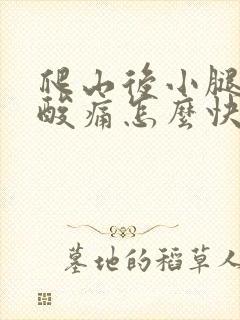 爬山後小腿
酸痛怎麼快
墓地的稻草人